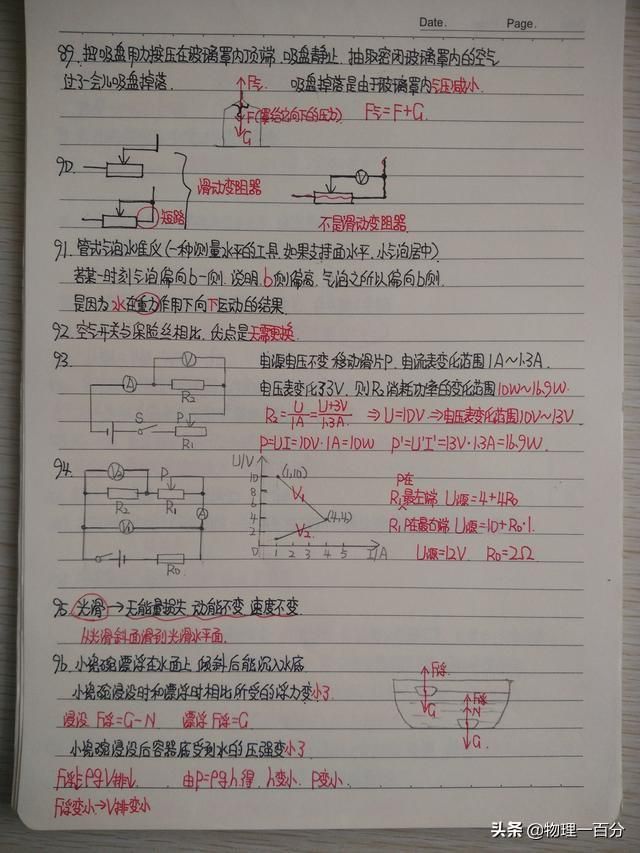 Date. Page.
89. 把吸盘用力按压在玻璃罩内顶端.吸盘静止.抽取密闭玻璃罩内的空气
过了一会儿吸盘掉落. 吸盘掉落是由于玻璃罩内气压减小.
F气
F(罩给它向下的压力) F气=F+G.
G
90. 滑动变阻器 V
短路 不是滑动变阻器
91. 管式气泡水准仪(一种测量水平的工具.如果支持面水平.小气泡居中)
若某一时刻气泡偏向b一侧.说明b侧偏高.气泡之所以偏向b侧.
是因为水在重力作用下向下运动的结果.
92. 空气开关与保险丝相比.优点是无需更换.
93. 电源电压不变.移动滑片P.电流表变化范围1A~1.3A.
V A R2 S P R1
电压表变化了3V.则R2消耗功率的变化范围10W~16.9W.
R2=U/1A=U+3V/1.3A. ⇒U=10V⇒电压表变化范围10V~13V
P=UI=10V·1A=10W P'=U'I'=13V·1.3A=16.9W.
94. V2 P R2 R1 A V1 R0
U/V 10 8 6 4 2 0 1 2 3 4 5 I/A (1,10) V1 (4,4) V2
P在
R1最左端 U源=4+4R0
R1P在最右端 U源=10+R0·1.
U源=12V. R0=2Ω
95. 光滑→无能量损失 动能不变 速度不变.
从光滑斜面滑到光滑水平面.
96. 小瓷碗漂浮在水面上 倾斜后能沉入水底
小瓷碗浸没时和漂浮时相比所受的浮力变小了
浸没 F浮=G-N 漂浮 F浮=G.
F浮 G F浮 N G
小瓷碗浸没后容器底受到水的压强变小了
F浮=ρgV排↓. 由p=ρgh得.h变小.P变小.
F浮变小→V排变小
头条 @物理一百分